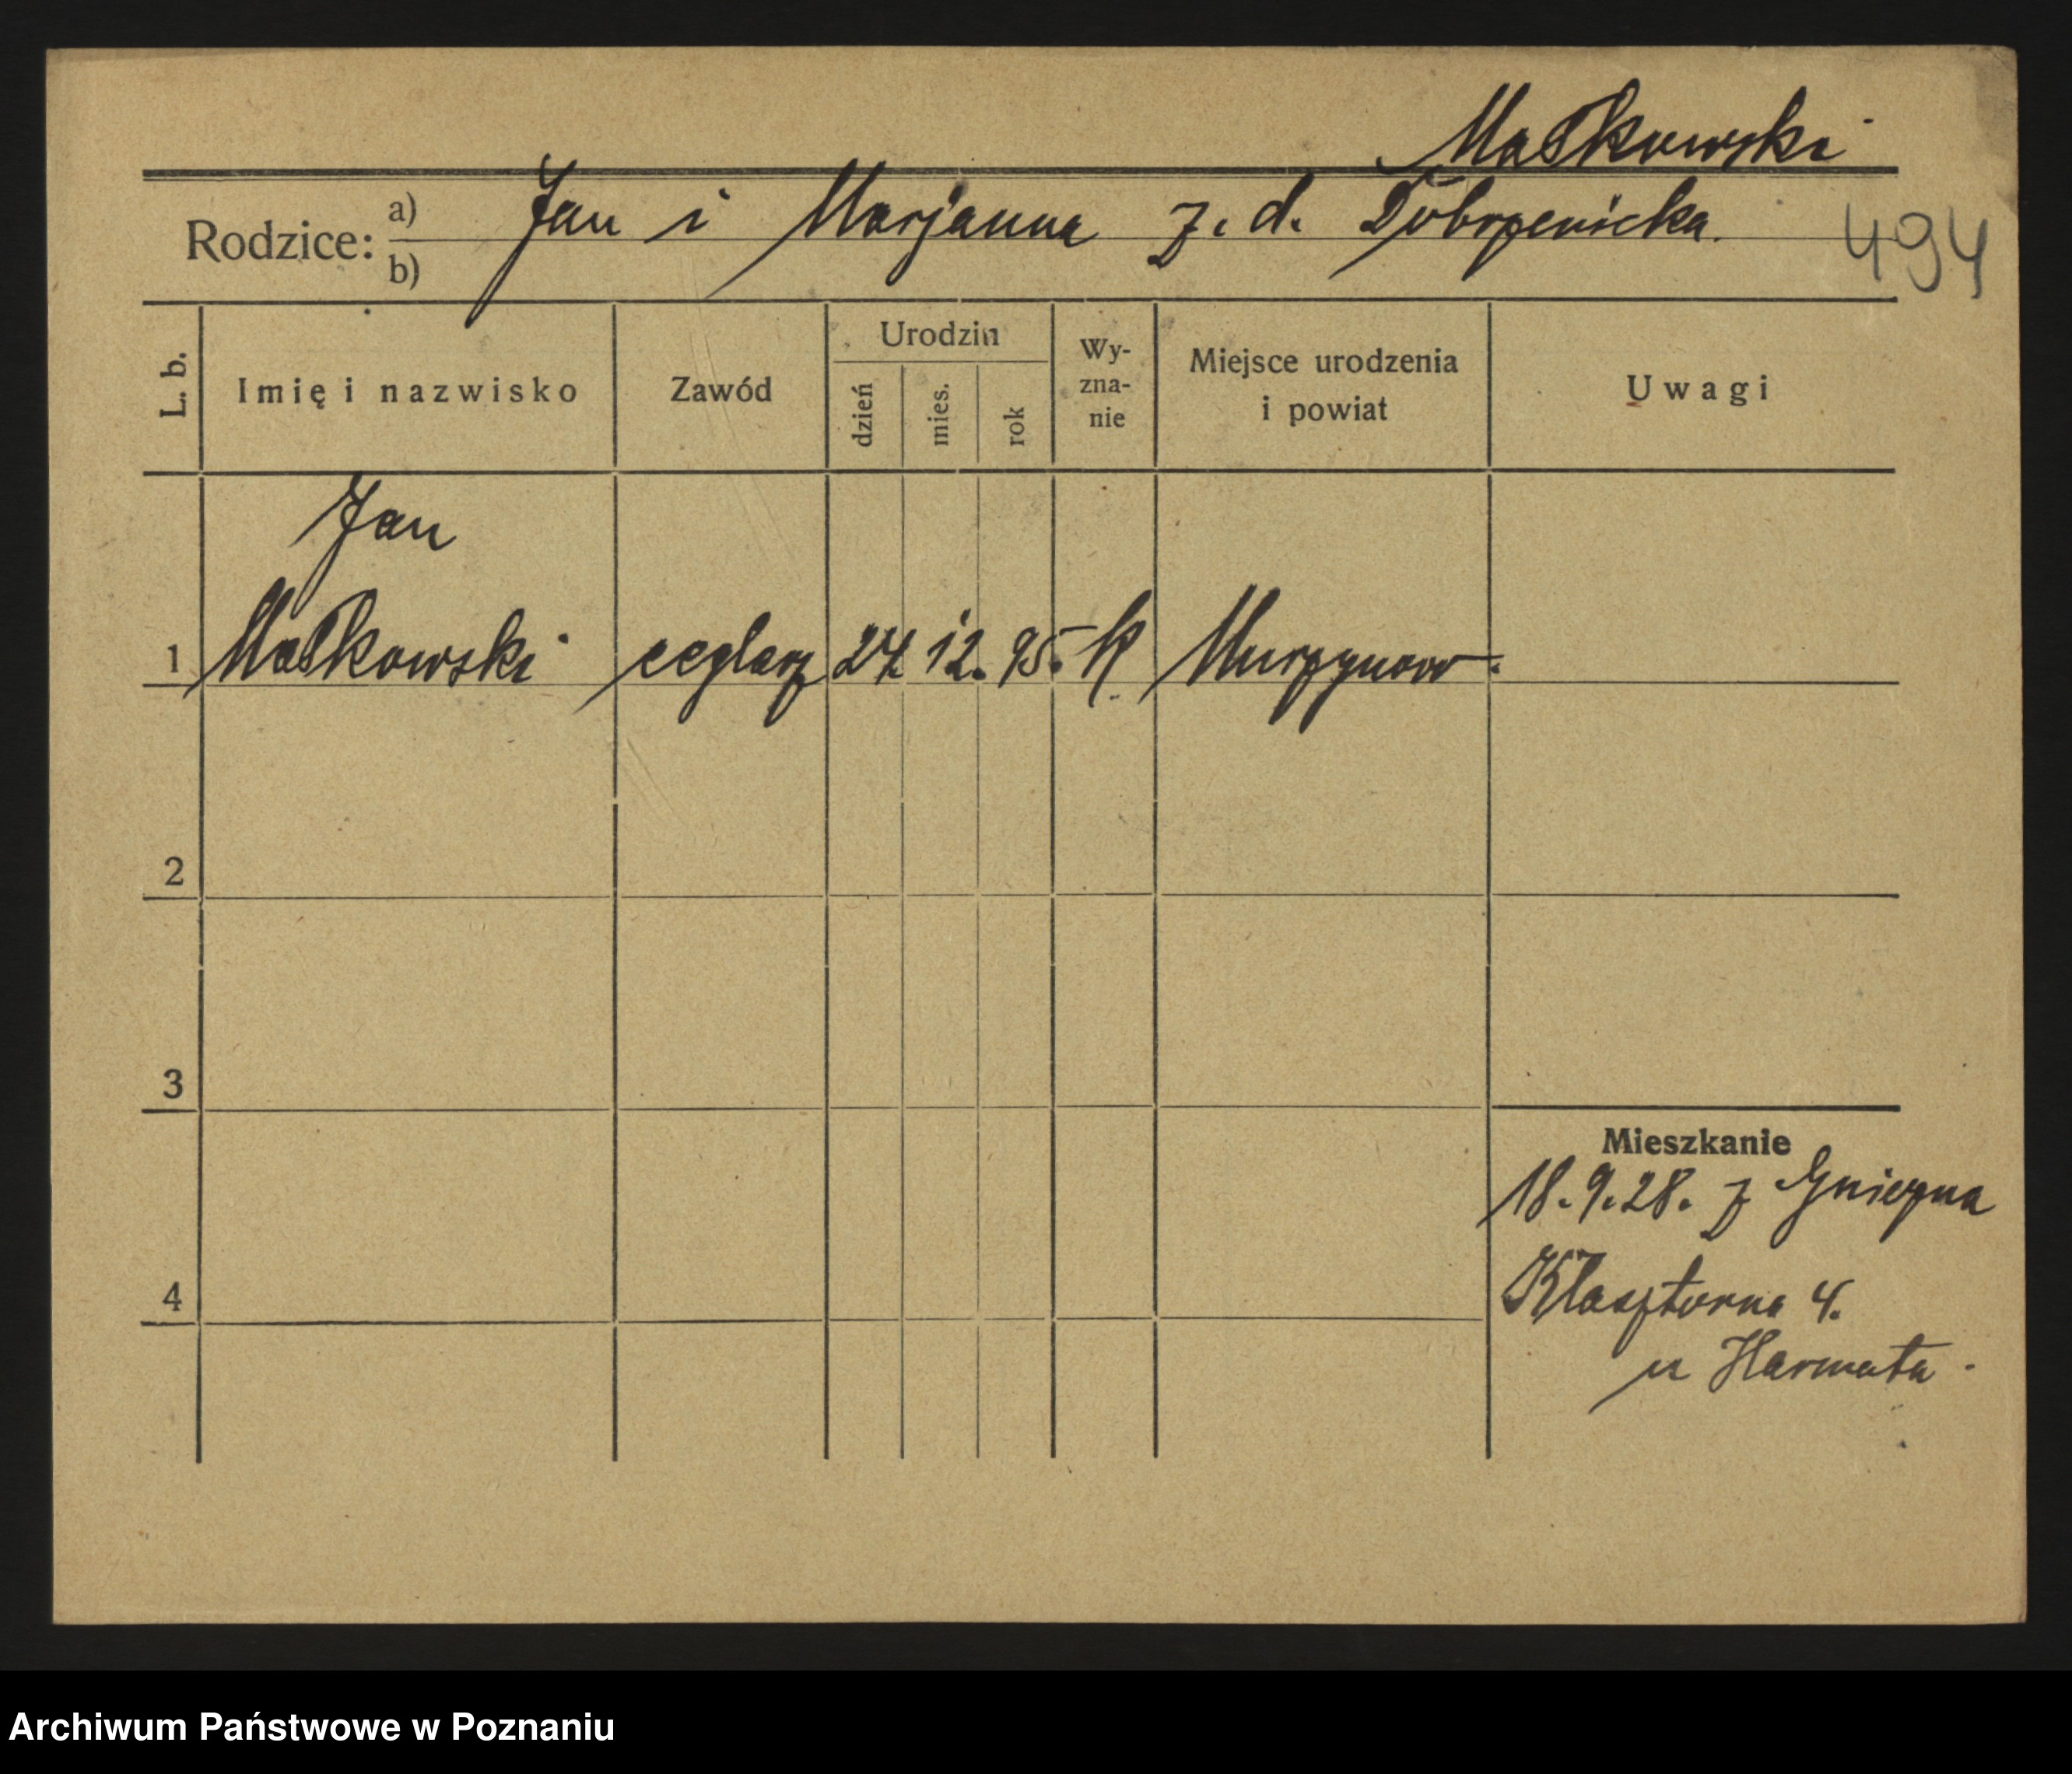 Maćkowski
Rodzice: a) Jan i Marjanna z. d. Dobrzenicka.
b)
494
L. b.
Imię i nazwisko
Zawód
Urodzin
dzień
mies.
rok
Wy-
zna-
nie
Miejsce urodzenia
i powiat
Uwagi
Jan
1 Maćkowski ceglarz 24. 12. 95. k Murzynow
2
3
Mieszkanie
18. 9. 28. z Gniezna
4 Klasztorna 4.
u Harmata
Archiwum Państwowe w Poznaniu